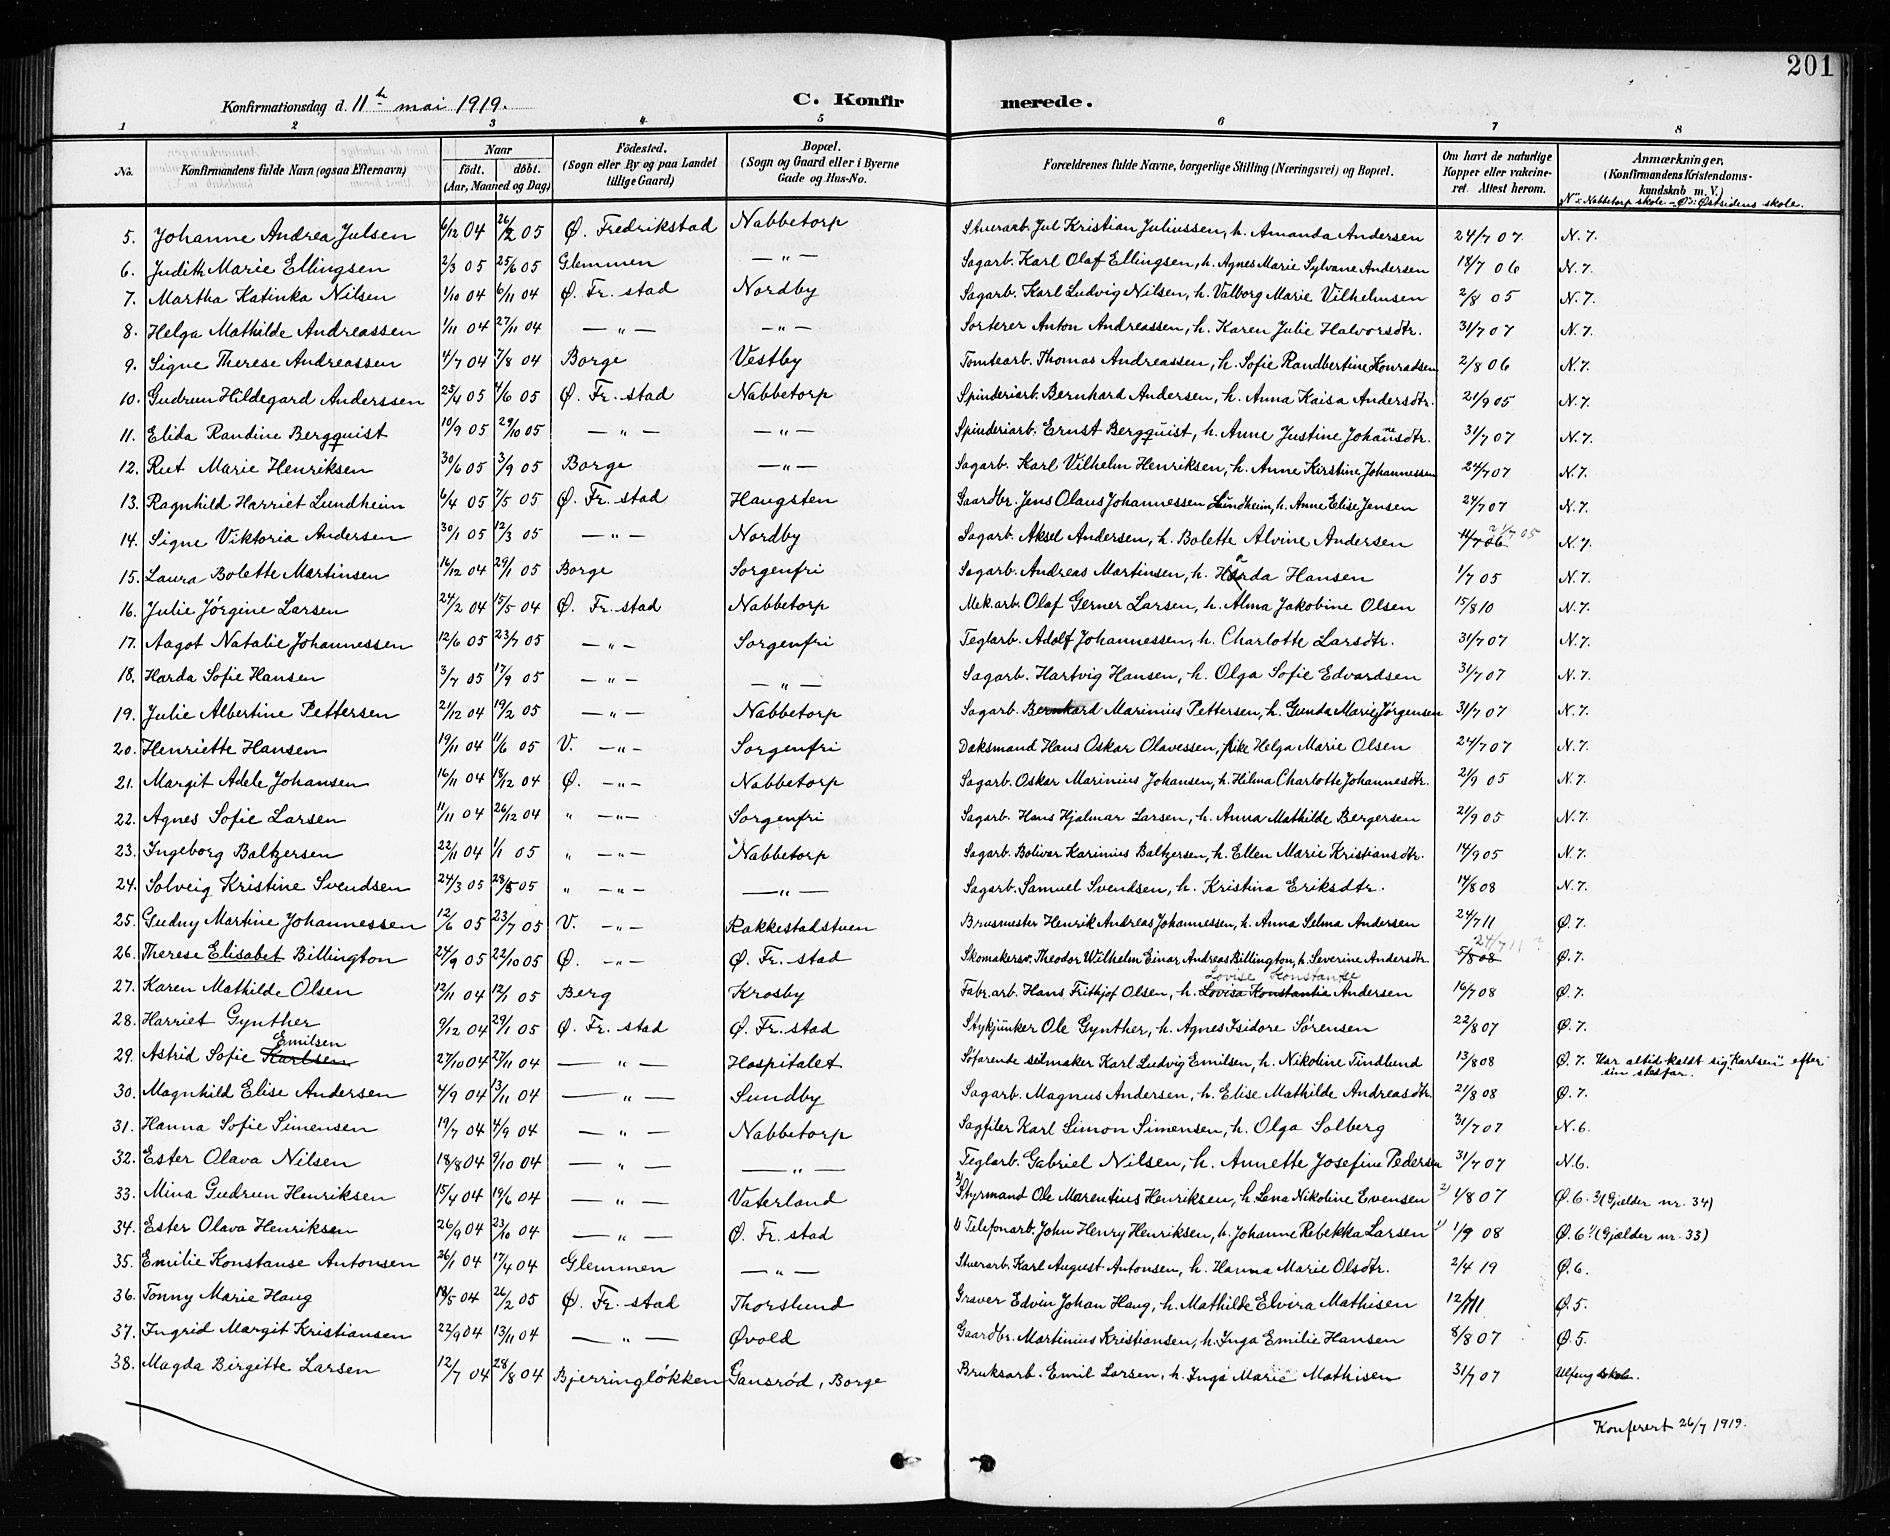 201
Konfirmationsdag d. 11te mai 1919. C. Konfirmerede.
1 2 3 4 5 6 7 8
No. Konfirmandens fulde Navn (ogsaa Efternavn) Naar født. døbt. (Aar, Maaned og Dag) Fødested. (Sogn eller By og paa Landet tillige Gaard) Bopæl. (Sogn og Gaard eller i Byerne Gade og Hus-No. Forældrenes fulde Navne, borgerlige Stilling (Næringsvei) og Bopæl. Om havt de naturlige Kopper eller vakcineret. Attest herom. Anmærkninger, (Konfirmandens Kristendomskundskab m. V.)
N = Nabbetorp skole - Ø = Østsidens skole.
5. Johanne Andrea Julsen 6/12 04 26/2 05 Ø. Fredrikstad Nabbetorp Stuerarb. Jul Kristian Juliussen, h. Amanda Andersen 24/7 07 N. 7.
6. Judith Marie Ellingsen 2/3 05 25/6 05 Glemmen — " — Sagarb. Karl Olaf Ellingsen, h. Agnes Marie Sylvane Andersen 18/7 06 N. 7.
7. Martha Katinka Nilsen 1/10 04 6/11 04 Ø. Fr. stad Nordby Sagarb. Karl Ludvig Nilsen, h. Valborg Marie Vilhelmsen 2/8 05 N. 7.
8. Helga Mathilde Andreassen 1/11 04 27/11 04 — " — — " — Sorterer Anton Andreassen, h. Karen Julie Halvorsdtr. 31/7 07 N. 7.
9. Signe Therese Andreassen 4/7 04 7/8 04 Borge Vestby Tomtearb. Thomas Andreassen, h. Sofie Randbertine Konradsen 2/8 06 N. 7.
10. Gudrun Hildegard Anderssen 25/4 05 4/6 05 Ø. Fr. stad Nabbetorp Spinderiarb. Bernhard Andersen, h. Anna Kaisa Andersdtr. 21/9 05 N. 7.
11. Elida Randine Bergquist 10/9 05 29/10 05 — " — — " — Spinderiarb. Ernst Bergquist, h. Anne Justine Johannesdtr. 31/7 07 N. 7.
12. Rut Marie Henriksen 30/6 05 3/9 05 Borge — " — Sagarb. Karl Vilhelm Henriksen, h. Anne Kirstine Johannessen 24/7 07 N. 7.
13. Ragnhild Harriet Lundheim 6/4 05 7/5 05 Ø. Fr. stad Haugsten Gaardbr. Jens Olaus Johannessen Lundheim, h. Anne Elise Jensen 24/7 07 N. 7.
14. Signe Viktoria Andersen 30/1 05 12/3 05 — " — Nordby Sagarb. Aksel Andersen, h. Bolette Alvine Andersen N. 7.
15. Laura Bolette Martinsen 16/12 04 29/1 05 Borge Sorgenfri Sagarb. Andreas Martinsen, h. Harda Hansen 1/7 05 N. 7.
16. Julie Jørgine Larsen 24/2 04 15/5 04 Ø. Fr. stad Nabbetorp Mek.arb. Olaf Gerner Larsen, h. Alma Jakobine Olsen 15/8 10 N. 7.
17. Aagot Natalie Johannessen 12/6 05 23/7 05 — " — Sorgenfri Teglarb. Adolf Johannessen, h. Charlotte Larsdtr. 31/7 07 N. 7.
18. Harda Sofie Hansen 3/7 05 17/9 05 — " — — " — Sagarb. Hartvig Hansen, h. Olga Sofie Edvardsen 31/7 07 N. 7.
19. Julie Albertine Pettersen 21/12 04 19/2 05 — " — Nabbetorp Sagarb. Bernhard Marinius Pettersen, h. Gunda Marie Jørgensen 31/7 07 N. 7.
20. Henriette Hansen 19/11 04 11/6 05 V. — " — Sorgenfri Dæksmand Hans Oskar Olavessen, pike Helga Marie Olsen 24/7 07 N. 7.
21. Margit Adele Johansen 16/11 04 18/12 04 Ø. — " — Nabbetorp Sagarb. Oskar Marinius Johansen, h. Hilma Charlotte Johannesdtr. 21/9 05 N. 7.
22. Agnes Sofie Larsen 11/11 04 26/12 04 " — " — Sorgenfri Sagarb. Hans Hjalmar Larsen, h. Anna Mathilde Bergersen 21/9 05 N. 7.
23. Ingeborg Baltzersen 22/11 04 1/1 05 " — " — Nabbetorp Sagarb. Bolivar Karinius Baltzersen, h. Ellen Marie Kristiansdtr. 14/9 05 N. 7.
24. Solveig Kristine Svendsen 24/3 05 28/5 05 " — " — — " — Sagarb. Samuel Svendsen, h. Kristina Eriksdtr. 14/8 08 N. 7.
25. Gudny Martine Johannessen 12/6 05 23/7 05 V. — " — Rakkestadstuen Brusmester Henrik Andreas Johannessen, h. Anna Selma Andersen 24/7 11 Ø. 7.
26. Therese Elisabet Billington 24/9 05 22/10 05 Ø. — " — Ø. Fr. stad Skomakersv. Theodor Wilhelm Einar Andreas Billington, h. Severine Andersdtr. 5/8 08 24/7 11 ? Ø. 7.
27. Karen Mathilde Olsen 12/11 04 12/1 05 Berg Krosby Fabr.arb. Hans Frithjof Olsen, h. Lovisa Konstantia Lovise Konstanse Andersen 16/7 08 Ø. 7.
28. Harriet Gynther 9/12 04 29/1 05 Ø. Fr. stad Ø. Fr. stad Stykjunker Ole Gynther, h. Agnes Isidore Sørensen 22/8 07 Ø. 7.
29. Astrid Sofie Karlsen Emilsen 27/10 04 27/11 04 — " — Hospitalet Søfarende seilmaker Karl Ludvig Emilsen, h. Nikoline Tindlund 13/8 08 Ø. 7. Har altid kaldt sig "Karlsen" efter sin stedfar.
30. Magnhild Elise Andersen 4/9 04 13/11 04 — " — Sundby Sagarb. Magnus Andersen, h. Elise Mathilde Andreasdtr. 21/8 08 Ø. 7.
31. Hanna Sofie Simensen 19/7 04 4/9 04 — " — Nabbetorp Sagfiler Karl Simon Simensen, h. Olga Solberg 31/7 07 N. 6.
32. Ester Olava Nilsen 18/8 04 9/10 04 — " — — " — Teglarb. Gabriel Nilsen, h. Annette Josefine Pedersen 31/7 07 N. 6.
33. Mina Gudrun Henriksen 15/4 04 19/6 04 — " — Vaterland 2) Styrmand Ole Marentius Henriksen, h. Lena Nikoline Evensen 2) 1/8 07 Ø. 6. 2) (Gjelder nr. 34)
34. Ester Olava Henriksen 26/9 04 23/10 04 — " — Ø. Fr. stad 1) Telefonarb. John Henry Henriksen, h. Johanne Rebekka Larsen 1) 1/9 08 Ø. 6 1) (Gjælder nr. 33)
35. Emilie Konstanse Antonsen 26/1 04 17/4 04 Glemmen — " — Stuerarb. Karl August Antonsen, h. Hanna Marie Olsdtr. 2/4 19 Ø. 6.
36. Tonny Marie Haug 18/5 04 26/2 05 Ø. Fr. stad Thorslund Graver Edvin Johan Haug, h. Mathilde Elvira Mathisen Ø. 5.
37. Ingrid Margit Kristiansen 22/9 04 13/11 04 — " — Øvold Gaardbr. Martinius Kristiansen, h. Inga Emilie Hansen 8/8 07 Ø. 5.
38. Magda Birgitte Larsen 12/7 04 28/8 04 Bjerringløkken Gansrød, Borge Bruksarb. Emil Larsen, h. Inga Marie Mathisen 31/7 07 Ulfeng skole.
Konferert 26/7 1919.